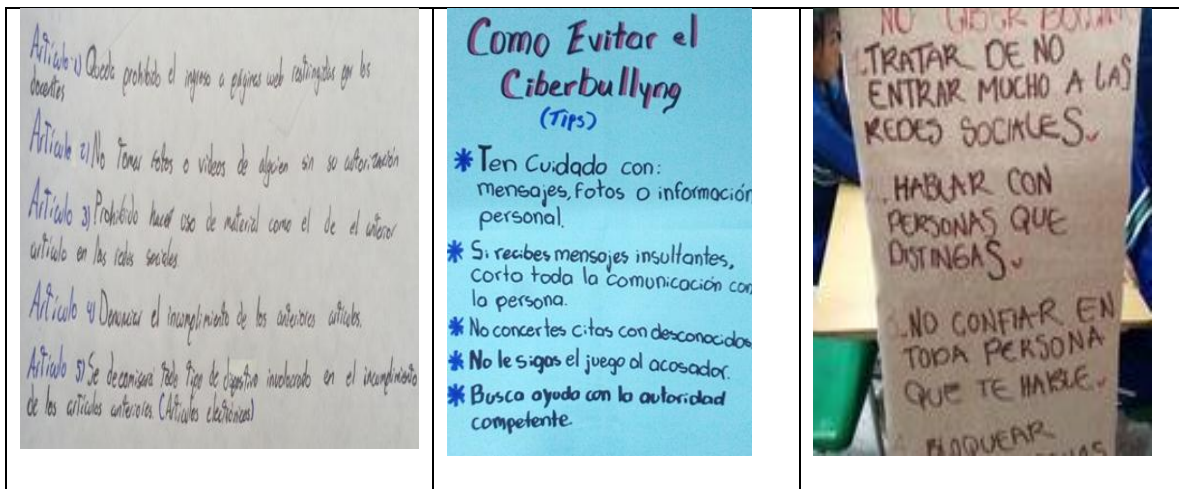 Artículo 1) Queda prohibido el ingreso a páginas web restringidas por los
docentes
Artículo 2) No Tomar fotos o videos de alguien sin su autorización
Artículo 3) Prohibido hacer uso de material como el de el anterior
artículo en las redes sociales
Artículo 4) Denunciar el incumplimiento de los anteriores artículos.
Artículo 5) Se decomisara todo tipo de dispositivo involucrado en el incumplimiento
de los artículos anteriores. (Artículos electrónicos)
Como Evitar el
Ciberbullyng
(Tips)
* Ten Cuidado con:
mensajes, fotos o información
personal.
* Si recibes mensajes insultantes,
corta toda la comunicación con
la persona.
* No concertes citas con desconocidos
* No le sigas el juego al acosador.
* Busca ayuda con la autoridad
competente.
NO CIBER
. TRATAR DE NO
ENTRAR MUCHO A LAS
REDES SOCIALES.
. HABLAR CON
PERSONAS QUE
DISTINGAS.
. NO CONFIAR EN
TODA PERSONA
QUE TE HABLE.
. BLOQUEAR